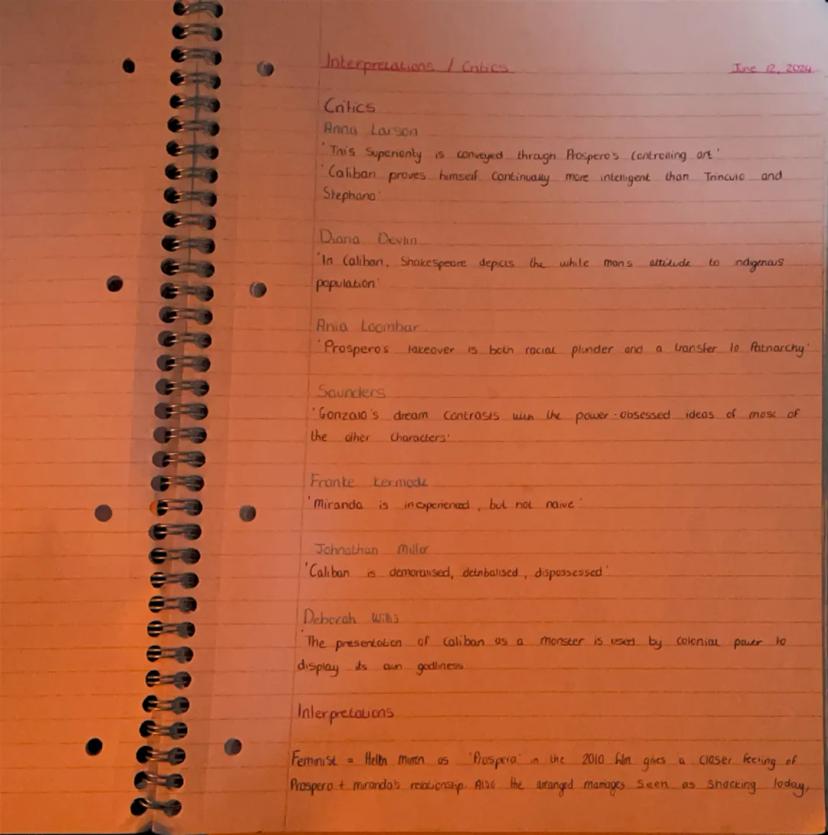 Interpretations / Critics
June 12, 2024
Critics
Anna Larson
'This Superiority is conveyed through Prospero's controlling art'
'Caliban proves himself continually more intelligent than Trinculo and
Stephano'
Diana Devlin
'In Caliban, Shakespeare depicts the white mans attitude to indigenous
population'
Ania Loombar
'Prospero's takeover is both racial plunder and a transfer to Patriarchy'
Saunders
'Gonzalo's dream contrasts with the power-obsessed ideas of most of
the other characters'
Franke Kermode
'Miranda is inexperienced, but not naive'
Johnathan Miller
'Caliban is demoralised, detribalised, dispossessed'
Deborah Willis
'The presentation of Caliban as a monster is used by colonial power to
display its own godliness
Interpretations
Feminist = Helen mirren as 'Prospera' in the 2010 film gives a closer feeling of
Prospero + miranda's relationship. Also the arranged marriages seen as shocking today,